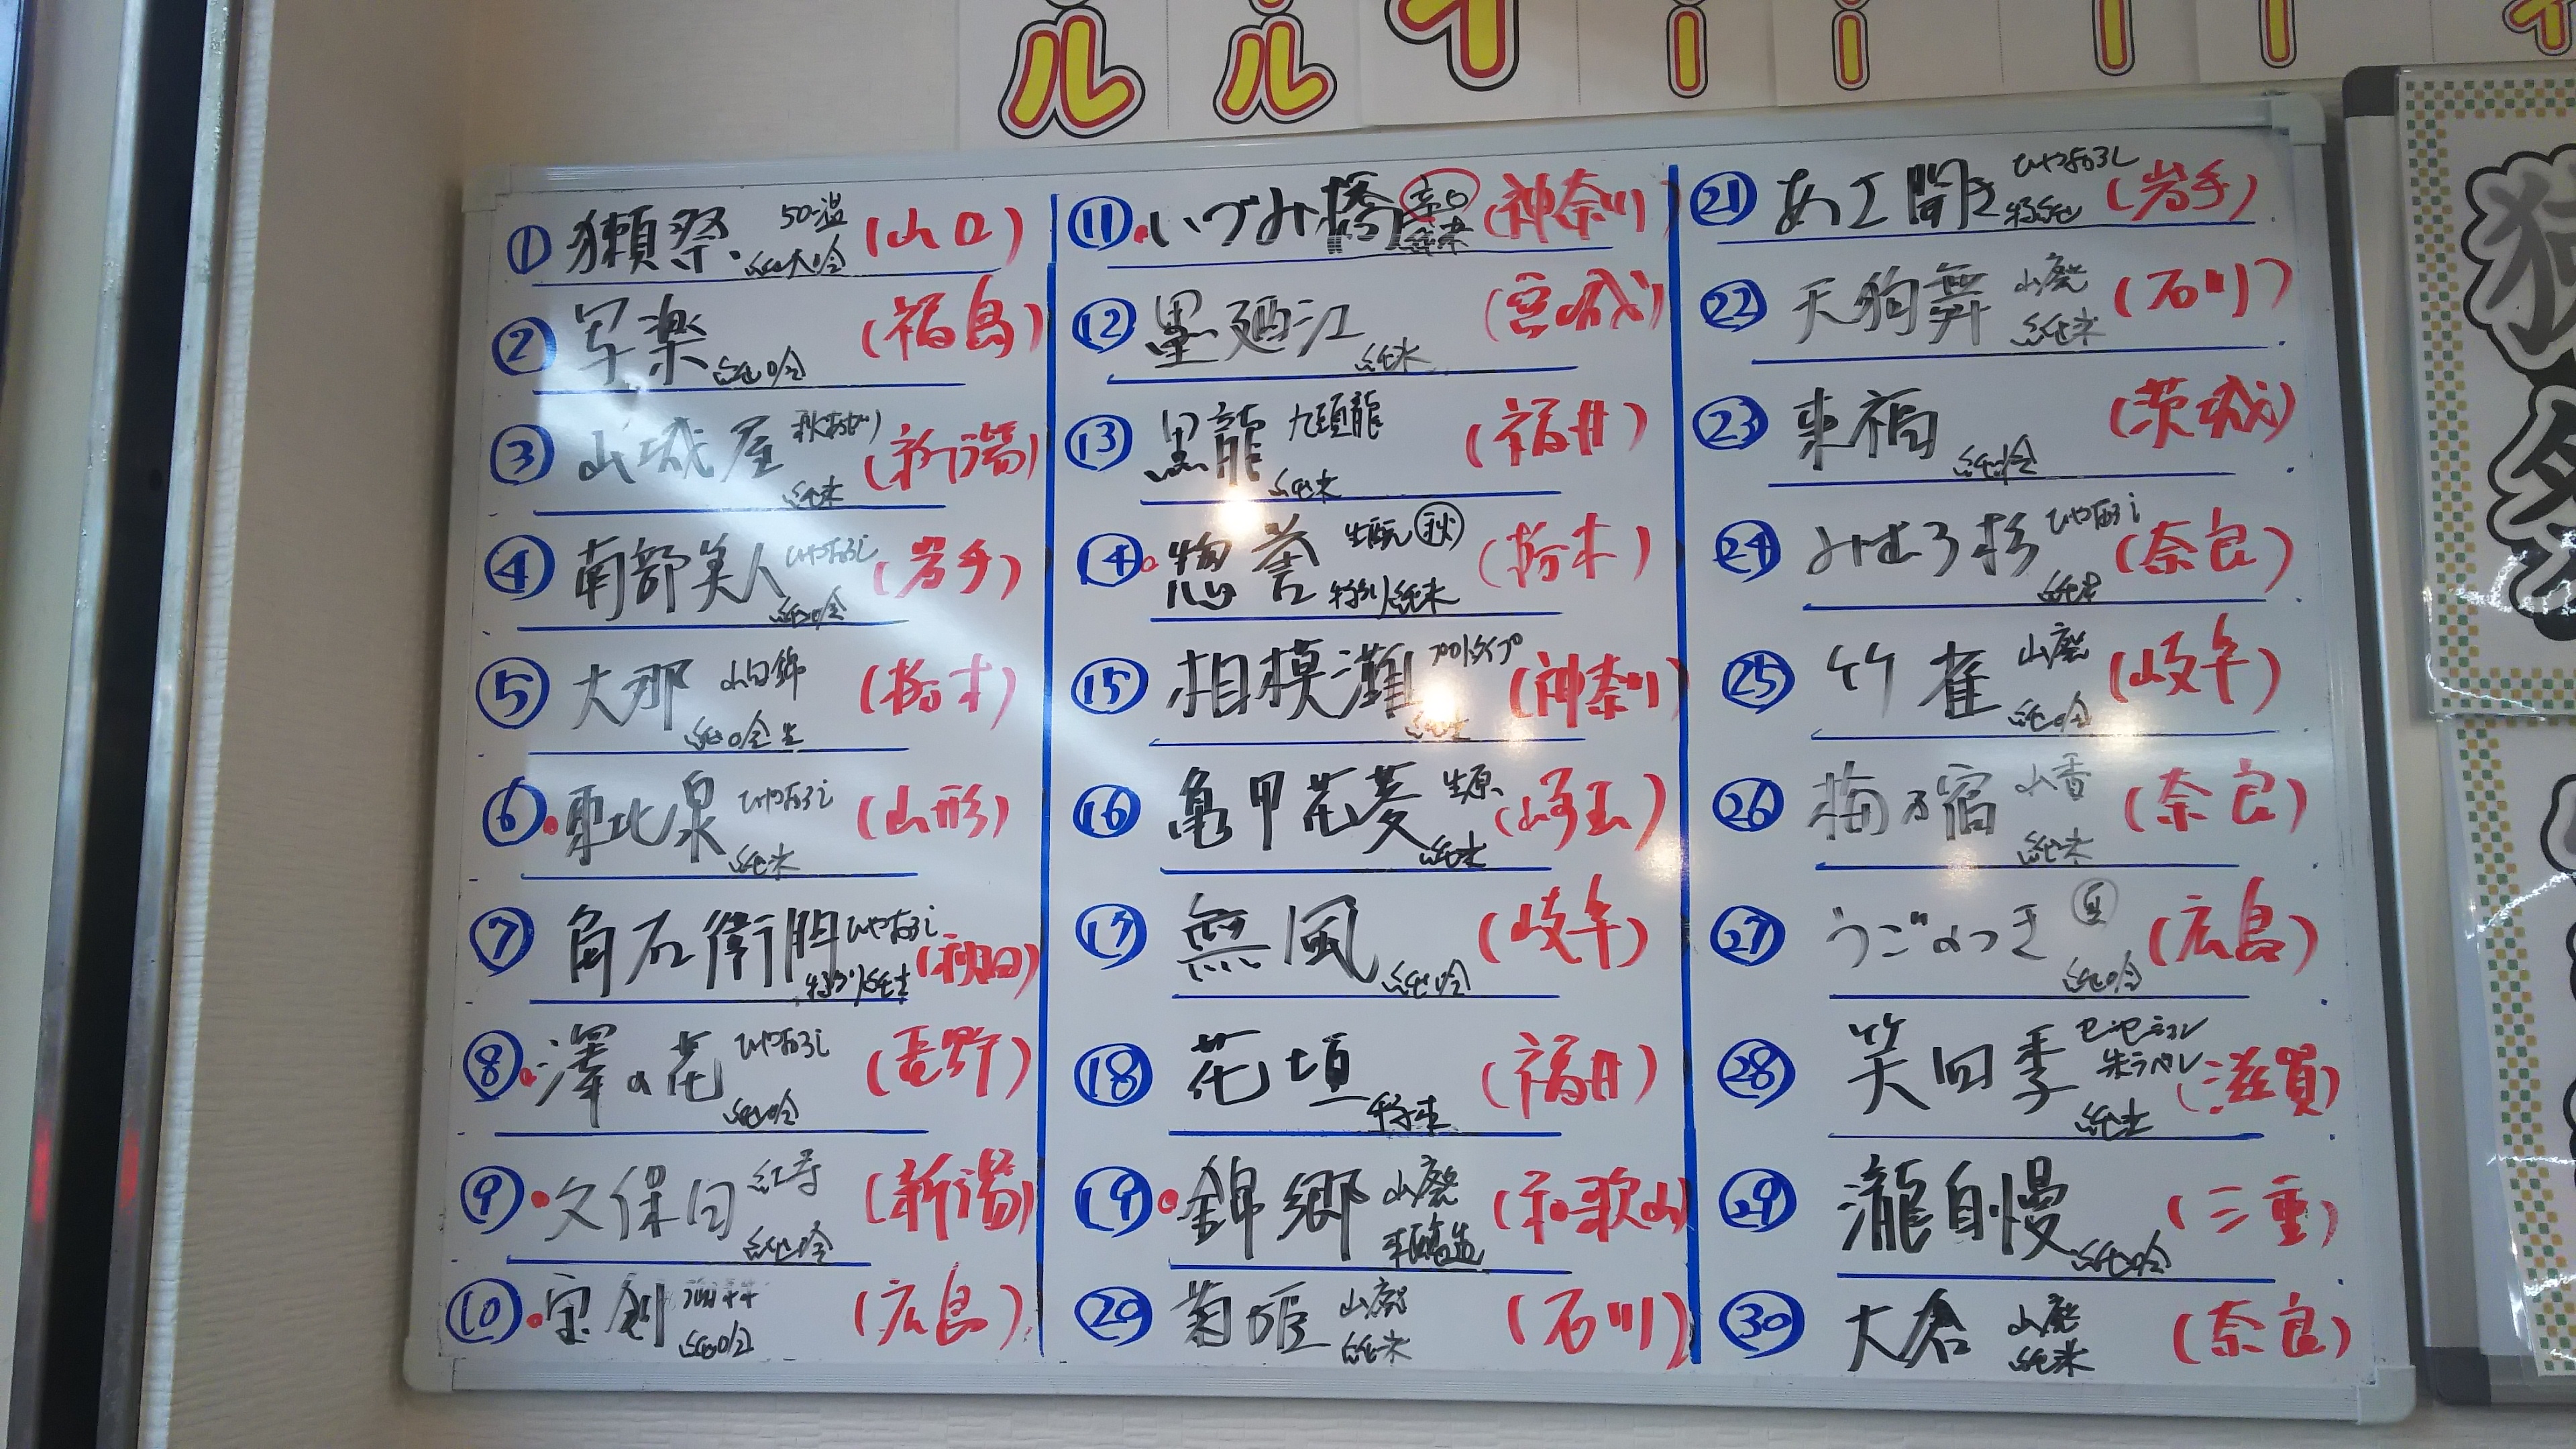 ル ル イ ー ー ー ー イ
① 獺祭 50温 純大吟 (山口)
② 写楽 純吟 (福島)
③ 山城屋 秋あがり 純米 (新潟)
④ 南部美人 ひやおろし 純吟 (岩手)
⑤ 大那 山田錦 純吟生 (栃木)
⑥ 東北泉 ひやおろし 純米 (山形)
⑦ 角右衛門 ひやおろし 特別純米 (秋田)
⑧ 澤の花 ひやおろし 純吟 (長野)
⑨ 久保田 紅寿 純吟 (新潟)
⑩ 宝剣 純吟 (広島)
⑪ いづみ橋 辛口 純米 (神奈川)
⑫ 墨廼江 純米 (宮城)
⑬ 黒龍 九頭龍 純米 (福井)
⑭ 惣誉 生酛 秋 特別純米 (栃木)
⑮ 相模灘 プロトタイプ (神奈川)
⑯ 亀甲花菱 生原 純米 (埼玉)
⑰ 無風 純吟 (岐阜)
⑱ 花垣 (福井)
⑲ 錦郷 山廃 (和歌山)
⑳ 菊姫 山廃 純米 (石川)
㉑ あさ開 ひやおろし 特純 (岩手)
㉒ 天狗舞 山廃 純米 (石川)
㉓ 来福 純吟 (茨城)
㉔ みむろ杉 ひやおろし 純米 (奈良)
㉕ 竹雀 山廃 純吟 (岐阜)
㉖ 梅乃宿 山香 純米 (奈良)
㉗ うごのつき 夏 純吟 (広島)
㉘ 笑四季 センセーショナル 朱ラベル 純米 (滋賀)
㉙ 瀧自慢 純吟 (三重)
㉚ 大倉 山廃 純米 (奈良)